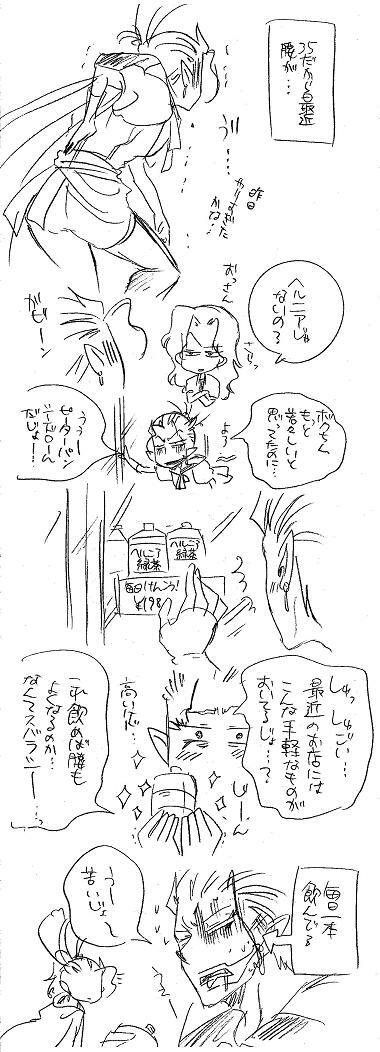 35だから最近
腰が…
う"…
昨日
やりすぎた
かな…
ヘルニアじゃ
ないの?
おっさん
ガビーン
ボクちゃん
もっと
若々しいと
思ってたのに…
よう
うぅー
ピーターパン
だじょー!
ヘルニア
緑茶
ヘルニア
緑茶
毎日けんこう!
¥198
しゅっ しゅごい…
最近のお店には
こんな手軽なものが
おいてるじょ…?
じーん
高いが…
これ飲めば腰も
よくなるのか…
なんてスバラシー…!
毎日一本
飲んでる
うー
苦いじょ〜